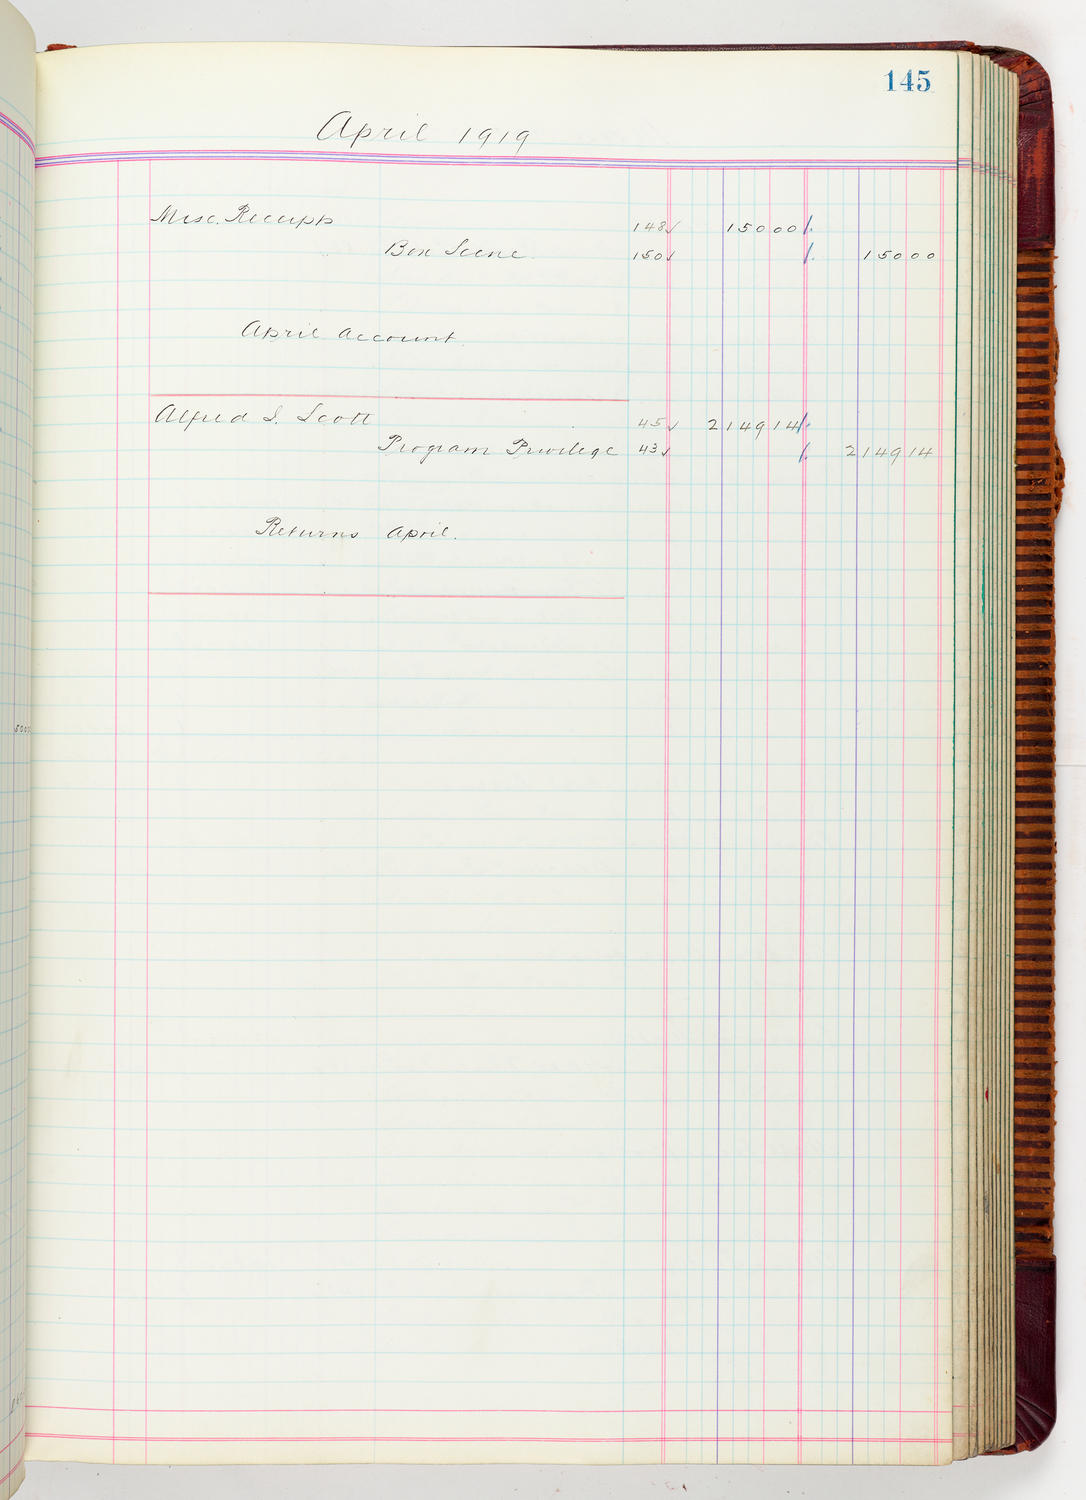 145
April 1919
Misc. Receipts 148✓ 15000
Box Scene 150✓ 15000
April Account.
Alfred I. Scott 45✓ 214914
Program Privilege 43✓ 214914
Returns April.